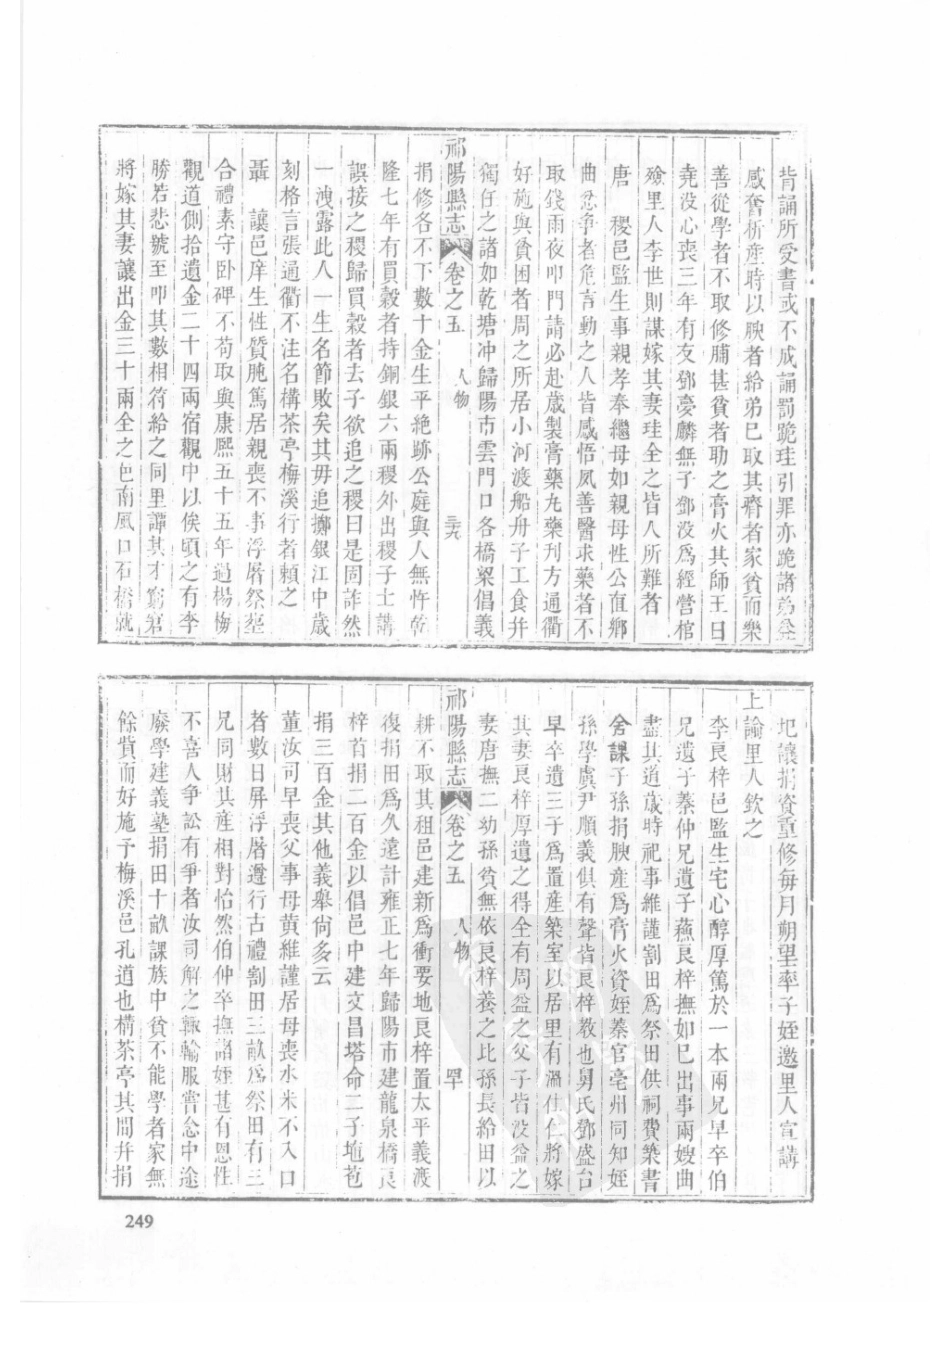 背誦所受書或不成誦罰跪珪引罪亦跪諸弟益
感奮析產時以腴者給弟已取其瘠者家貧而樂
善從學者不取修脯甚貧者助之膏火其師王日
堯沒心喪三年有友鄧夢麟無子鄧沒爲經營棺
殮里人李世則謀嫁其妻珪全之皆人所難者
唐 稷邑監生事親孝奉繼母如親母性公直鄉
曲忿爭者危言動之人皆感悟夙善醫求藥者不
取錢雨夜叩門請必赴歲製膏藥丸藥刋方通衢
好施與貧困者周之所居小河渡船舟子工食幷
獨任之諸如乾塘冲歸陽市雲門口各橋梁倡義
祁陽縣志 卷之五 人物 三十九
捐修各不下數十金生平絶跡公庭與人無忤乾
隆七年有買穀者持銅銀六兩稷外出稷子士講
誤接之稷歸買穀者去子欲追之稷曰是同詐然
一洩露此人一生名節敗矣其毋追擲銀江中歲
刻格言張通衢不注名構茶亭梅溪行者頼之
聶 讓邑庠生性質朴篤居親喪不事浮屠祭葬
合禮素守卧碑不苟取與康熙五十五年過楊梅
觀道側拾遺金二十四兩宿觀中以俟頃之有李
勝若悲號至叩其數相符給之同里譚其才窮窘
將嫁其妻讓出金三十兩全之邑南風口石橋就
圮讓捐資重修每月朔望率子姪邀里人宣講
上諭里人欽之
李良梓邑監生宅心醇厚篤於一本兩兄早卒伯
兄遺子蓁仲兄遺子燕良梓撫如己出事兩嫂曲
盡其道歲時祀事維謹割田爲祭田供祠費築書
舍課子孫捐腴產爲膏火資姪蓁官亳州同知姪
孫學虞尹順義俱有聲皆良梓敎也舅氏鄧盛台
早卒遺三子爲置產築室以居里有溫仕仁將嫁
其妻良梓厚遺之得全有周益之父子皆沒益之
妻唐撫二幼孫貧無依良梓養之比孫長給田以
祁陽縣志 卷之五 人物 四十
耕不取其租邑建新爲衝要地良梓置太平義渡
復捐田爲久遠計雍正七年歸陽市建龍泉橋良
梓首捐二百金以倡邑中建文昌塔命二子地苞
捐三百金其他義舉尙多云
董汝司早喪父事母黄維謹居母喪水米不入口
者數日屏浮屠遵行古禮割田三畝爲祭田有三
兄同財其產相對怡然伯仲卒撫諸姪甚有恩性
不喜人爭訟有爭者汝司解之輙輸服嘗念中途
廢學建義塾捐田十畝課族中貧不能學者家無
餘貲而好施予梅溪邑孔道也構茶亭其間幷捐
249